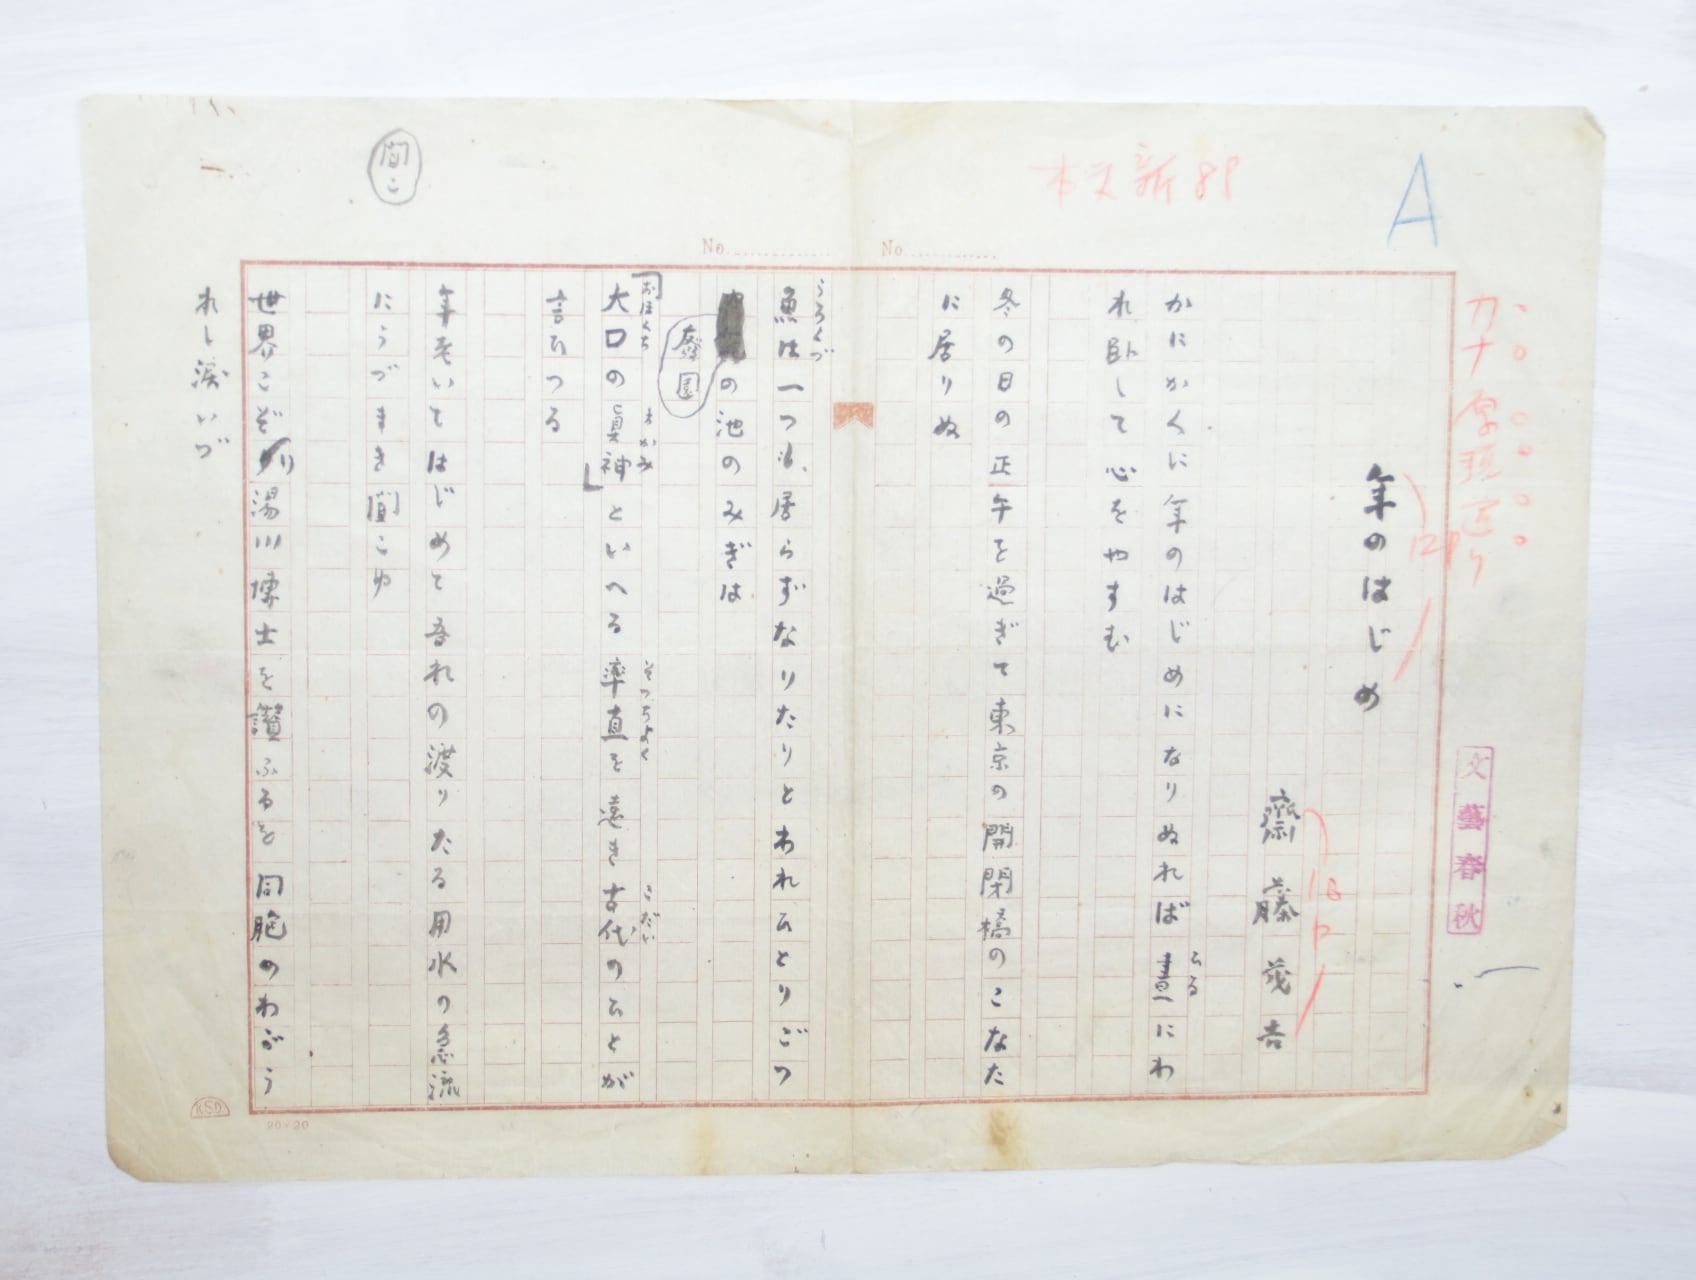 A
本文新8P
カナ字現送り
12P
年のはじめ
齋藤茂吉
18P
文藝春秋
No.
No.
かにかくに年のはじめになりぬれば晝にわ
ひる
れ臥して心をやすむ
冬の日の正午を過ぎて東京の開閉橋のこなた
に居りぬ
うろくづ
魚は一つも居らずなりたりとわれひとりごつ
の池のみぎは
廢園
おほくち まかみ そつちよく こだい
「大口の眞神」といへる率直を遠き古代のひとが
言ひつる
年老いてはじめて吾れの渡りたる用水の急流
にうづまき聞こゆ
聞こ
世界こぞり湯川博士を讃ふるを同胞のわがう
れし涙いづ
KSD
20×20